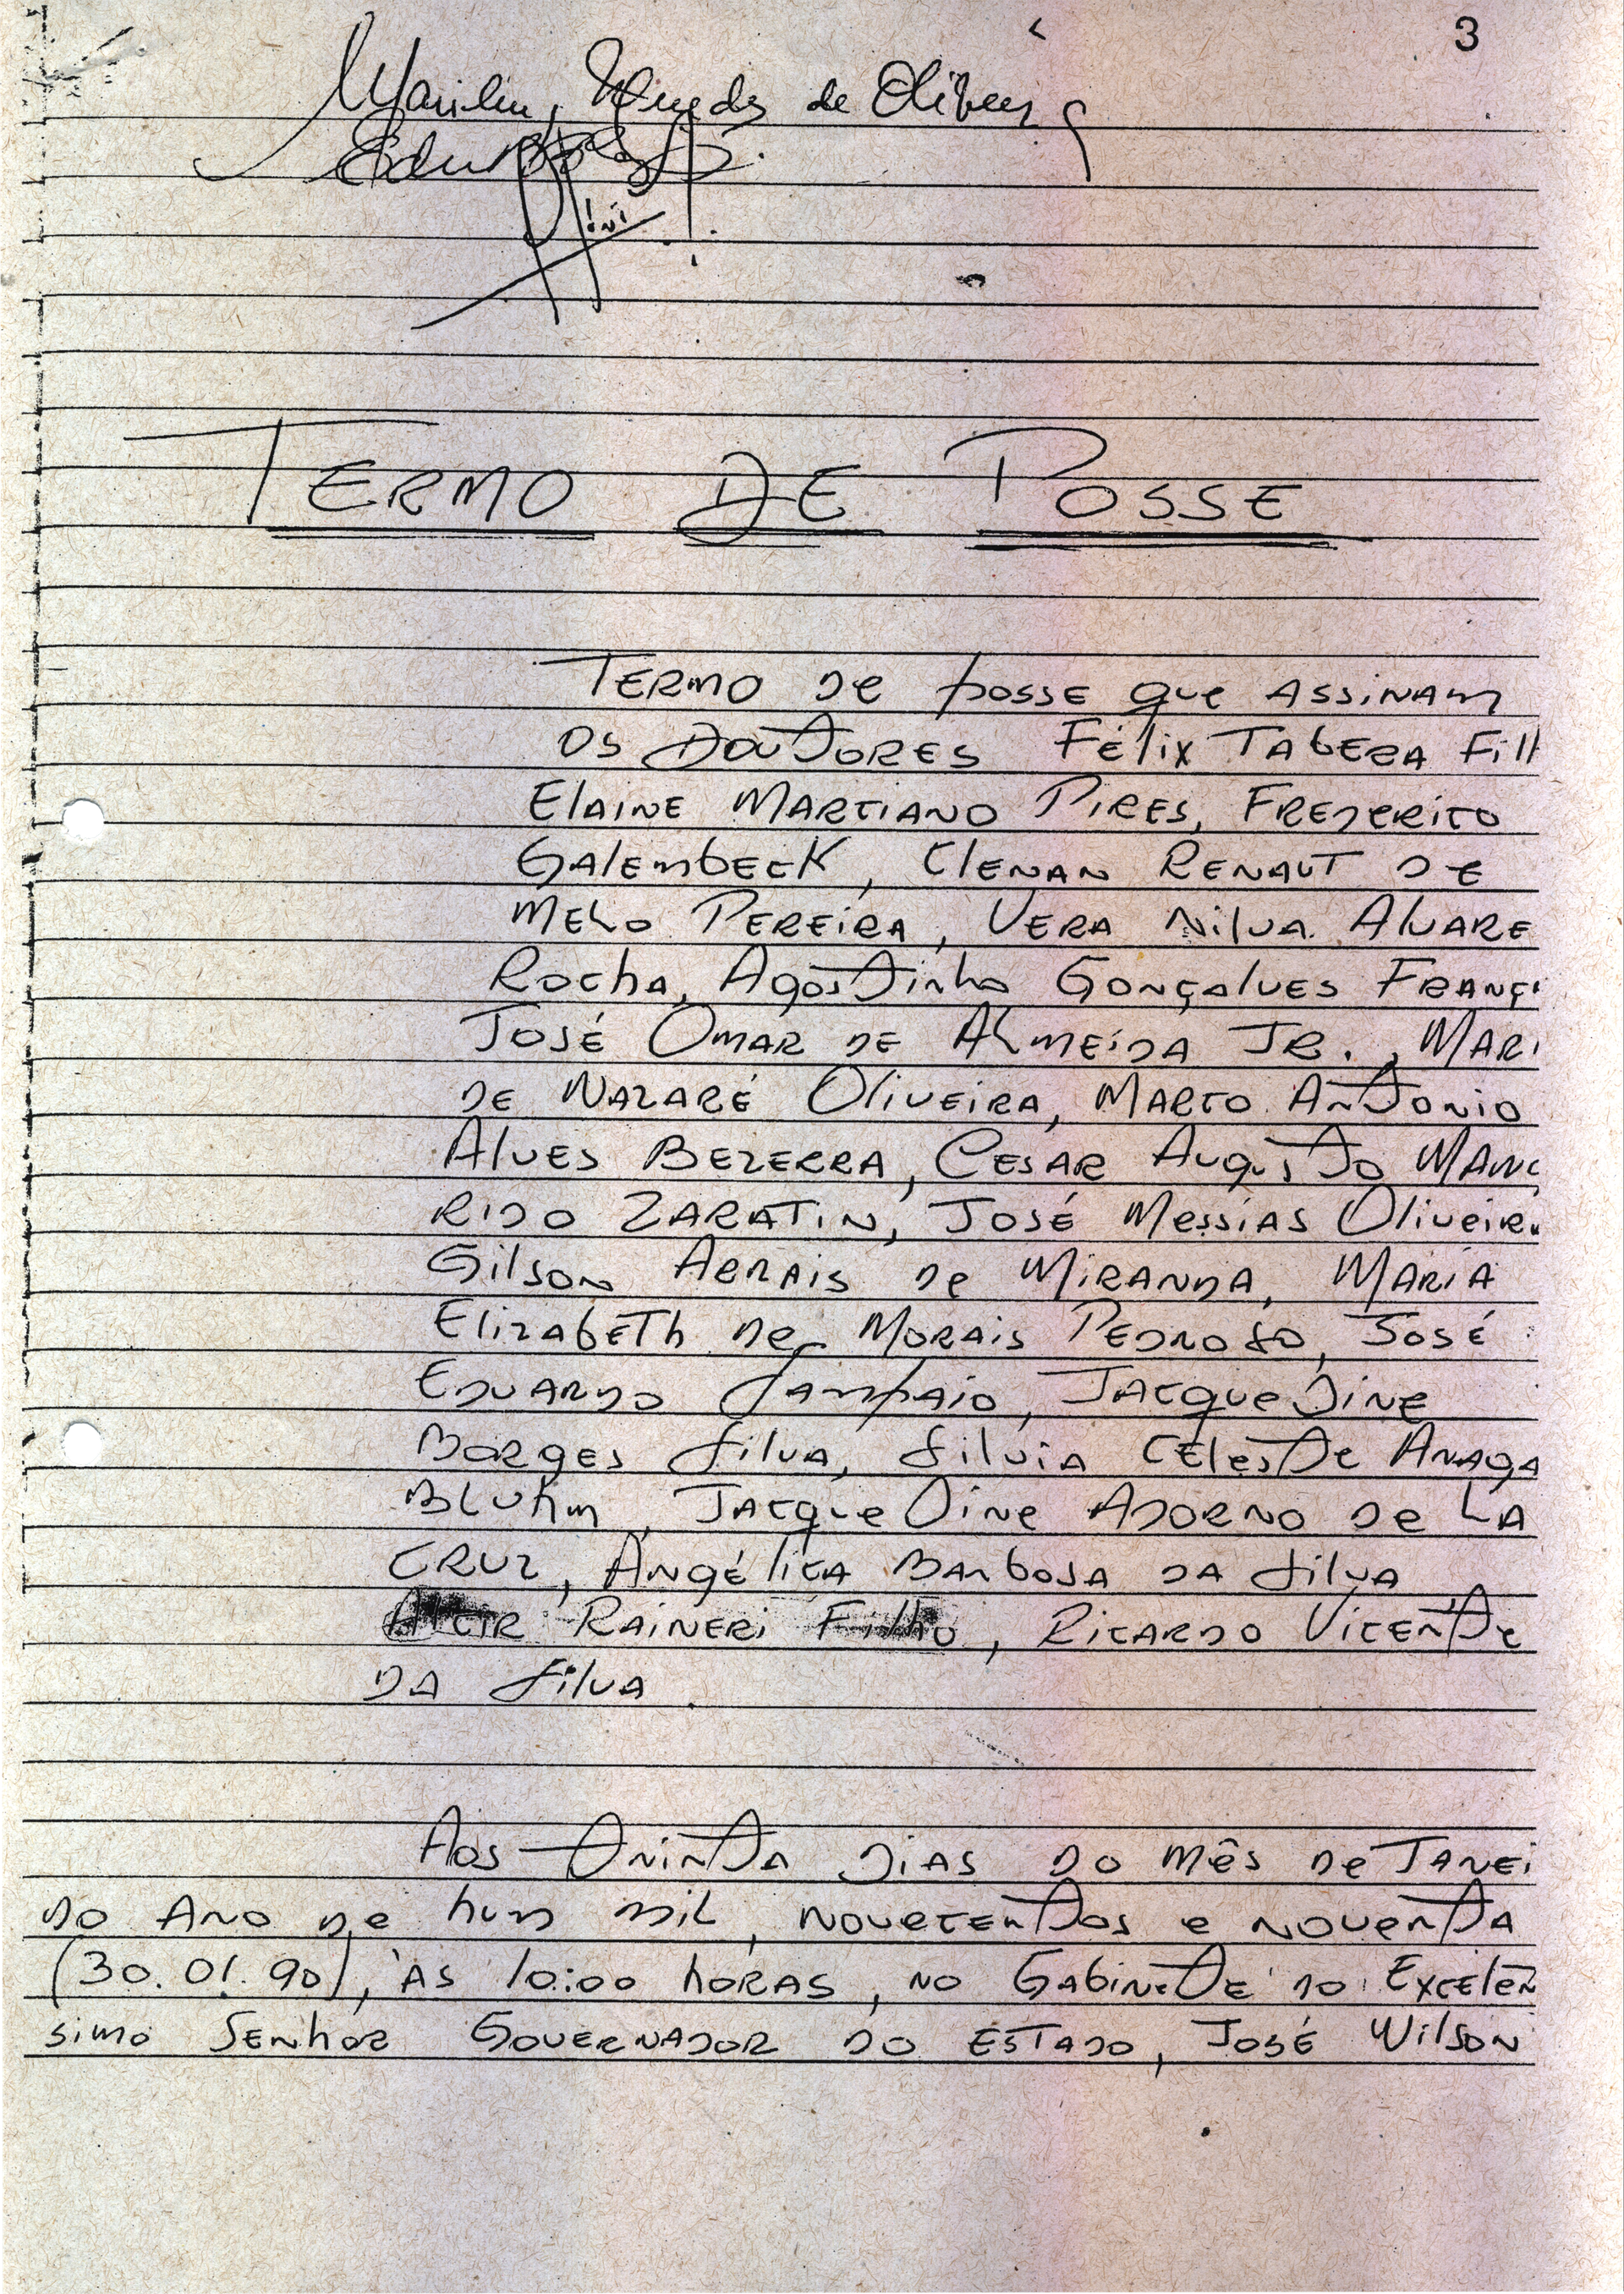 3
de
TERMO DE POSSE
TERMO DE posse que ASSINAM
OS DOUTORES Félix TABERA Filh
ELAINE MARCIANO PIRES, FREDERICO
GALEMBECK, CLENAN RENAUT DE
MELO PEREIRA, VERA NILVA ALVARE
ROCHA, AGOSTINHO GONÇALVES FRANÇ
JOSÉ OMAR DE ALMEIDA JR., MARI
DE NAZARÉ OLIVEIRA, MARCO ANTONIO
ALVES BEZERRA, CESAR AUGUSTO MARG
RIDO ZARATIN, JOSÉ MESSIAS OLIVEIR
GILSON ARRAIS DE MIRANDA, MARIA
ELIZABETH DE MORAIS PEDROSO, JOSÉ
EDUARDO SAMPAIO, JACQUELINE
BORGES SILVA, SILVIA CELESTE ARAGA
BLUHM, JACQUELINE ADORNO DE LA
CRUZ, ANGÉLICA BARBOSA DA SILVA
ALCIR RAINERI FILHO, RICARDO VICENTE
DA SILVA.
AOS TRINTA DIAS DO MÊS DE JANEI
DO ANO DE HUM MIL, NOVECENTOS E NOVENTA
(30.01.90), ÀS 10:00 HORAS, NO GABINETE DO EXCELEN
SIMO SENHOR GOVERNADOR DO ESTADO, JOSÉ WILSON